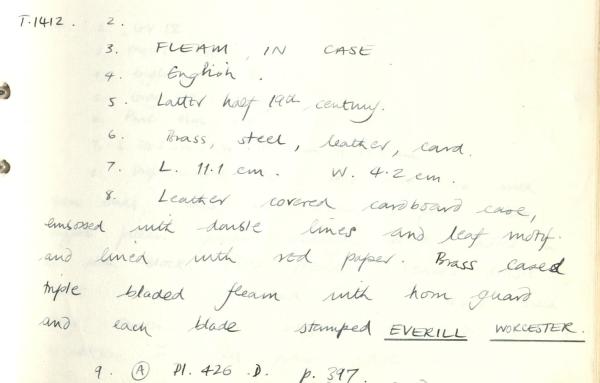 T.1412. 2.
3. FLEAM IN CASE
4. English.
5. Latter half 19th century.
6. Brass, steel, leather, card.
7. L. 11.1 cm. W. 4.2 cm.
8. Leather covered cardboard case,
embossed with double lines and leaf motif
and lined with red paper. Brass cased
triple bladed fleam with horn guard
and each blade stamped EVERILL WORCESTER.
9. (A) Pl. 426 .D. p. 397.